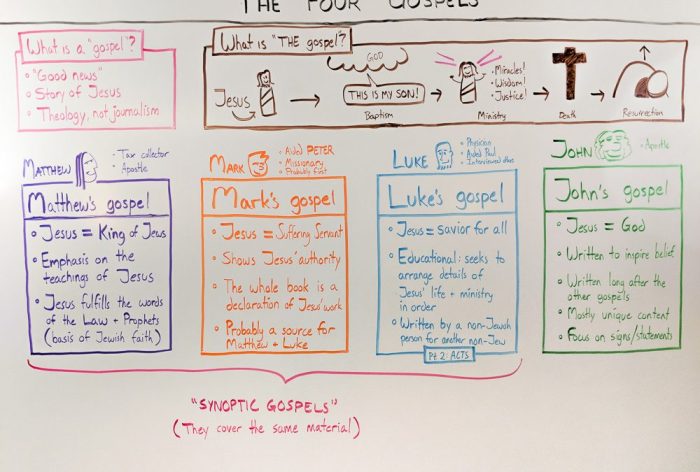 THE FOUR GOSPELS
What is a "gospel"?
• "Good news"
• Story of Jesus
• Theology, not journalism
What is "THE gospel"?
Jesus
GOD
THIS IS MY SON!
Baptism
• Miracles!
• Wisdom!
• Justice!
Ministry
Death
Resurrection
MATTHEW
• Tax collector
• Apostle
Matthew's gospel
• Jesus = King of Jews
• Emphasis on the
teachings of Jesus
• Jesus fulfills the words
of the Law + Prophets
(basis of Jewish faith)
MARK
• Aided PETER
• Missionary
• Probably first
Mark's gospel
• Jesus = Suffering Servant
• Shows Jesus' authority
• The whole book is a
declaration of Jesus' work
• Probably a source for
Matthew + Luke
LUKE
• Physician
• Aided Paul
• Interviewed
Luke's gospel
• Jesus = savior for all
• Educational: seeks to
arrange details of
Jesus' life + ministry
in order
• Written by a non-Jewish
person for another non-Jew
Pt. 2: ACTS
JOHN
• Apostle
John's gospel
• Jesus = God
• Written to inspire belief
• Written long after the
other gospels
• Mostly unique content
• Focus on signs/statements
"SYNOPTIC GOSPELS"
(They cover the same material)